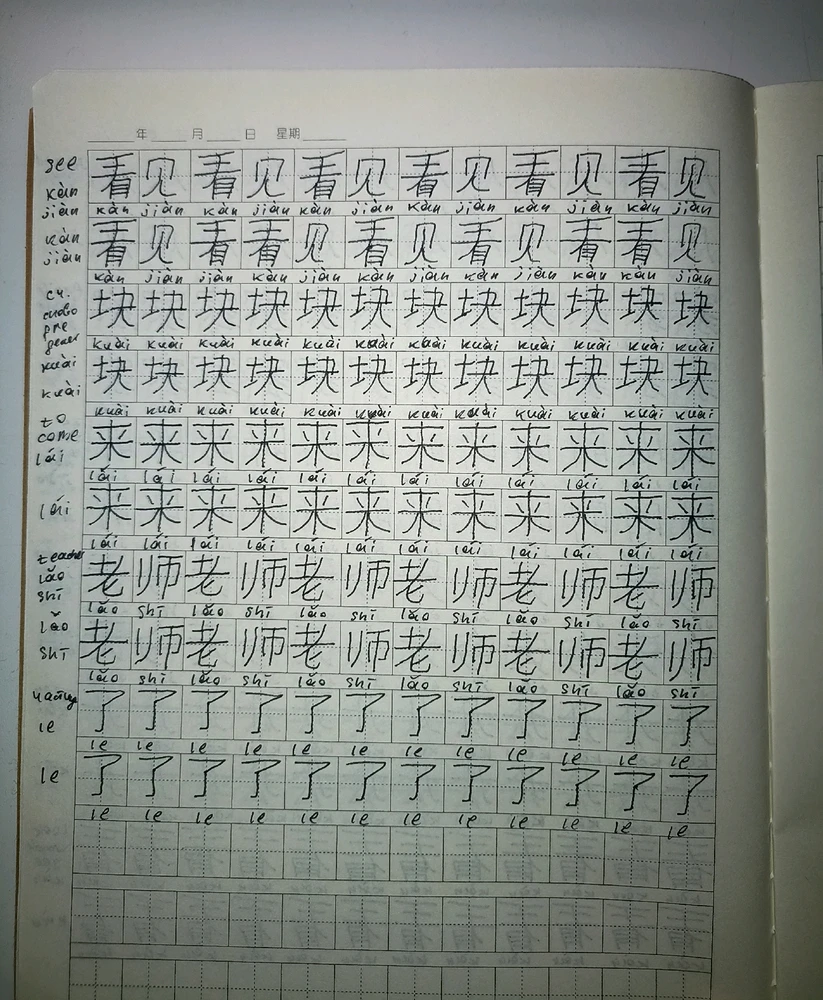 年 月 日 星期
see 看 见 看 见 看 见 看 见 看 见 看 见
kàn
jiàn kàn jiàn kàn jiàn kàn jiàn kàn jiàn kàn jiàn kàn jiàn
kàn 看 见 看 看 见 看 见 看 见 看 看 见
jiàn
kàn jiàn jiàn kàn jiàn kàn jiàn kàn jiàn kàn kàn jiàn
сч. 块 块 块 块 块 块 块 块 块 块 块 块
слово
для
kuài kuài kuài kuài kuài kuài kuài kuài kuài kuài kuài kuài
kuài 块 块 块 块 块 块 块 块 块 块 块 块
kuài
kuài kuài kuài kuài kuài kuài kuài kuài kuài kuài kuài kuài
to
come 来 来 来 来 来 来 来 来 来 来 来 来
lái
lái lái lái lái lái lái lái lái lái lái lái lái
lái 来 来 来 来 来 来 来 来 来 来 来 来
lái lái lái lái lái lái lái lái lái lái lái lái
teacher
lǎo 老 师 老 师 老 师 老 师 老 师 老 师
shī
lǎo shī lǎo shī lǎo shī lǎo shī lǎo shī lǎo shī
lǎo 老 师 老 师 老 师 老 师 老 师 老 师
shī
lǎo shī lǎo shī lǎo shī lǎo shī lǎo shī lǎo shī
частица 了 了 了 了 了 了 了 了 了 了 了 了
le
le le le le le le le le le le le le
le 了 了 了 了 了 了 了 了 了 了 了 了
le le le le le le le le le le le le